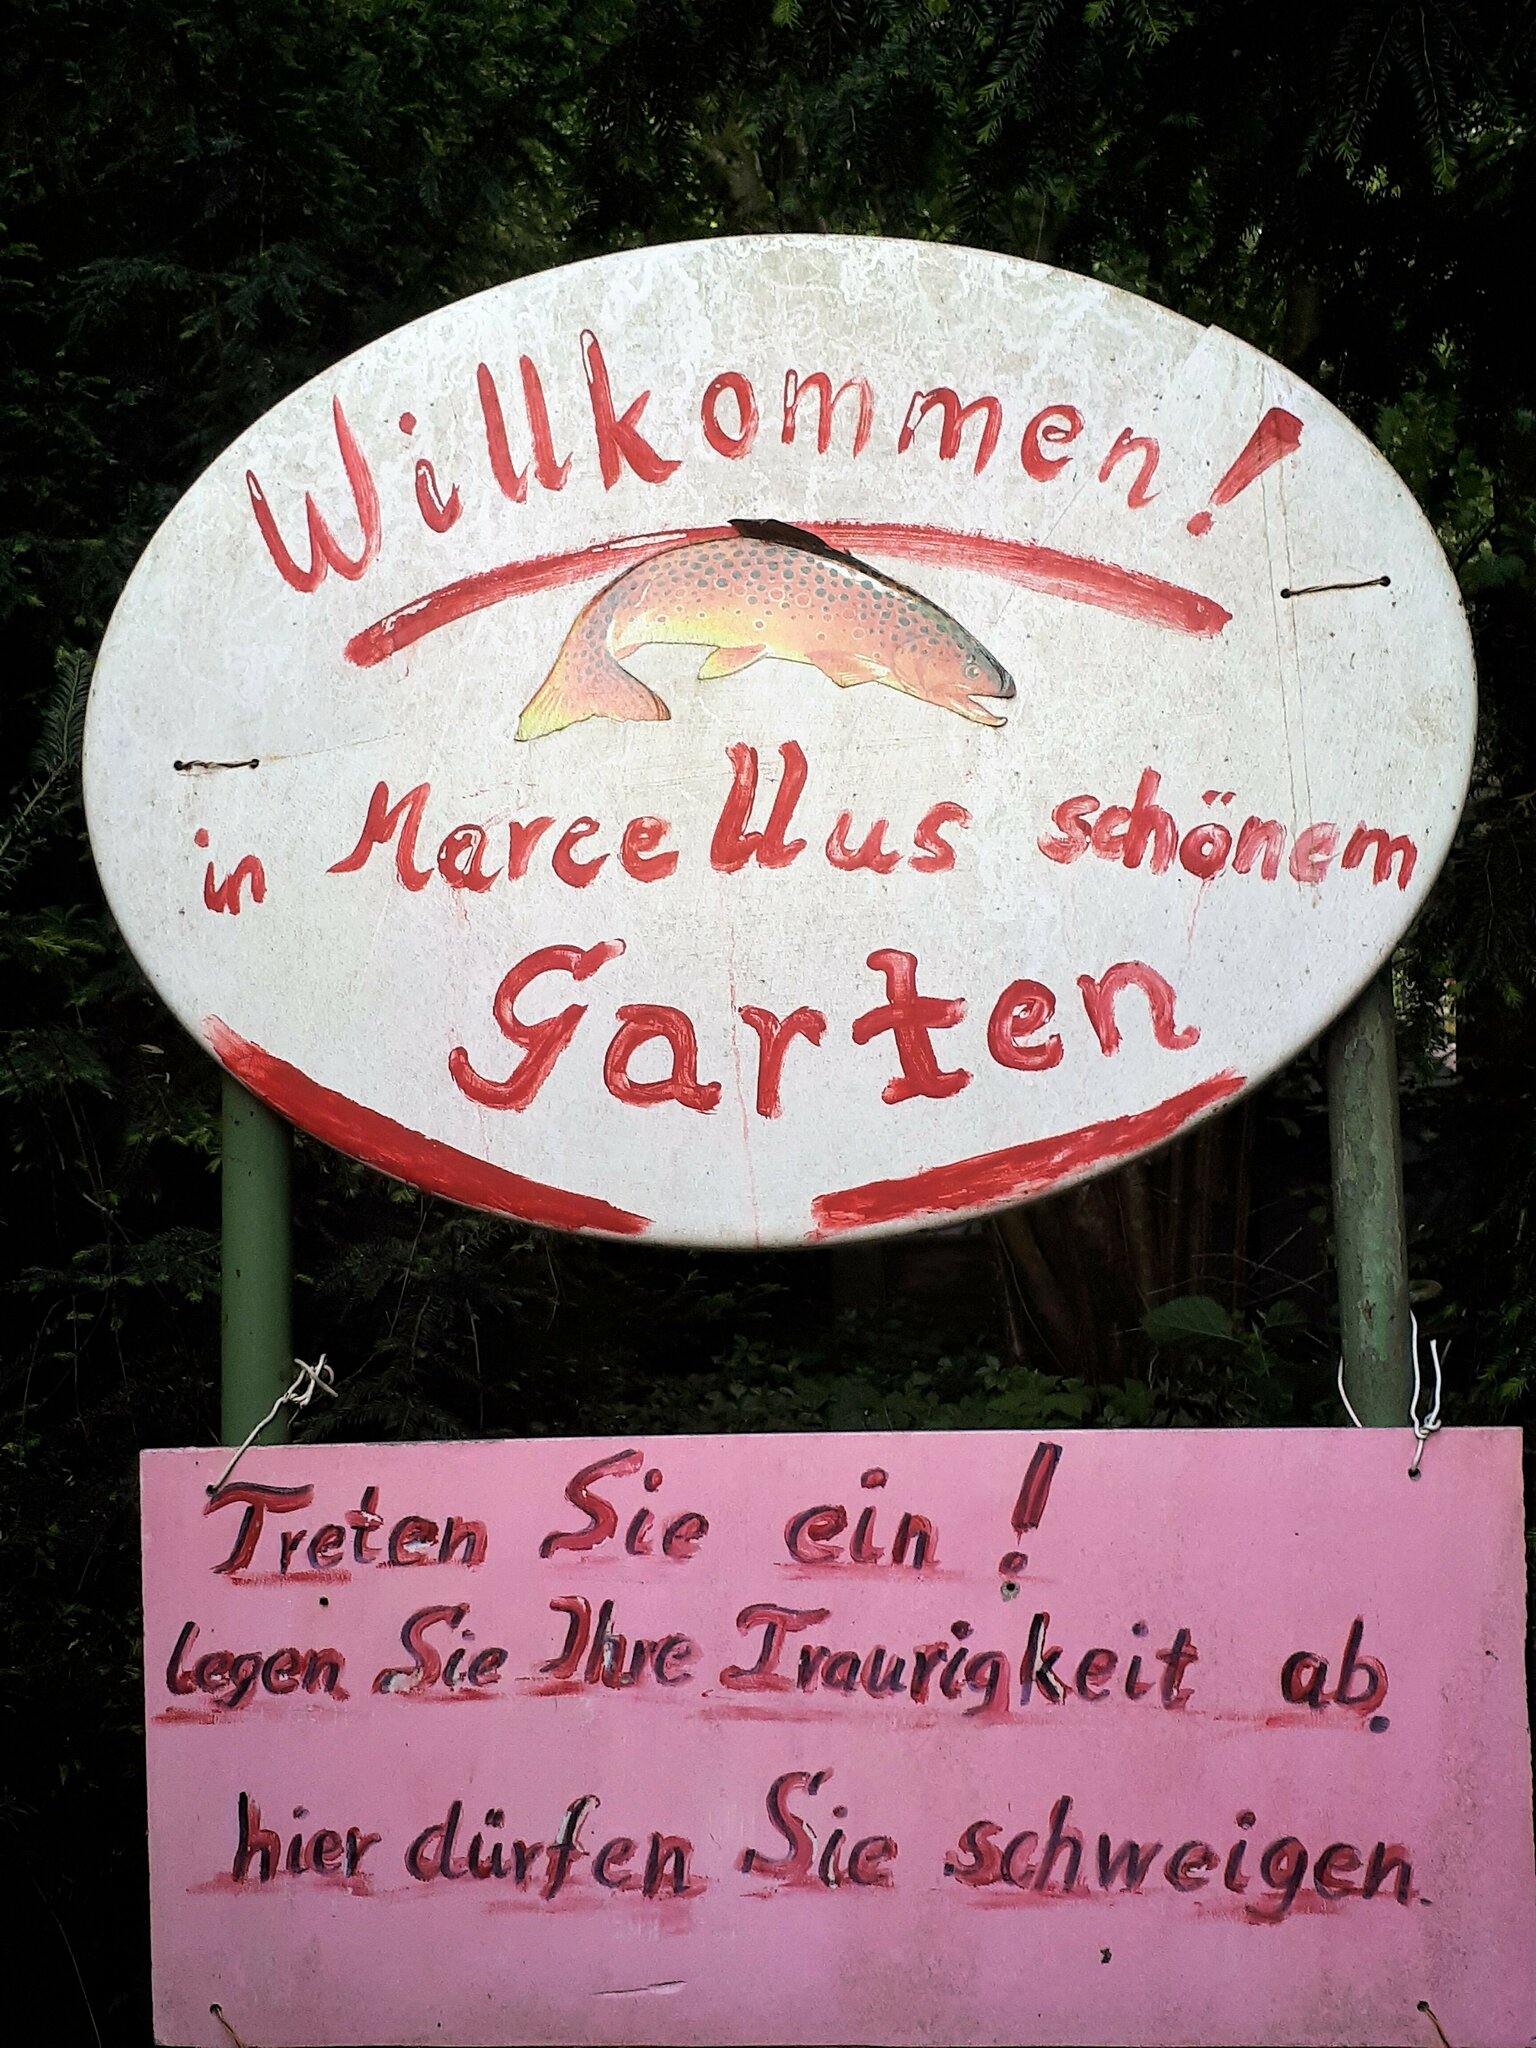 Willkommen!
in Marcellus schönem
Garten
Treten Sie ein!
legen Sie Ihre Traurigkeit ab.
hier dürfen Sie schweigen.